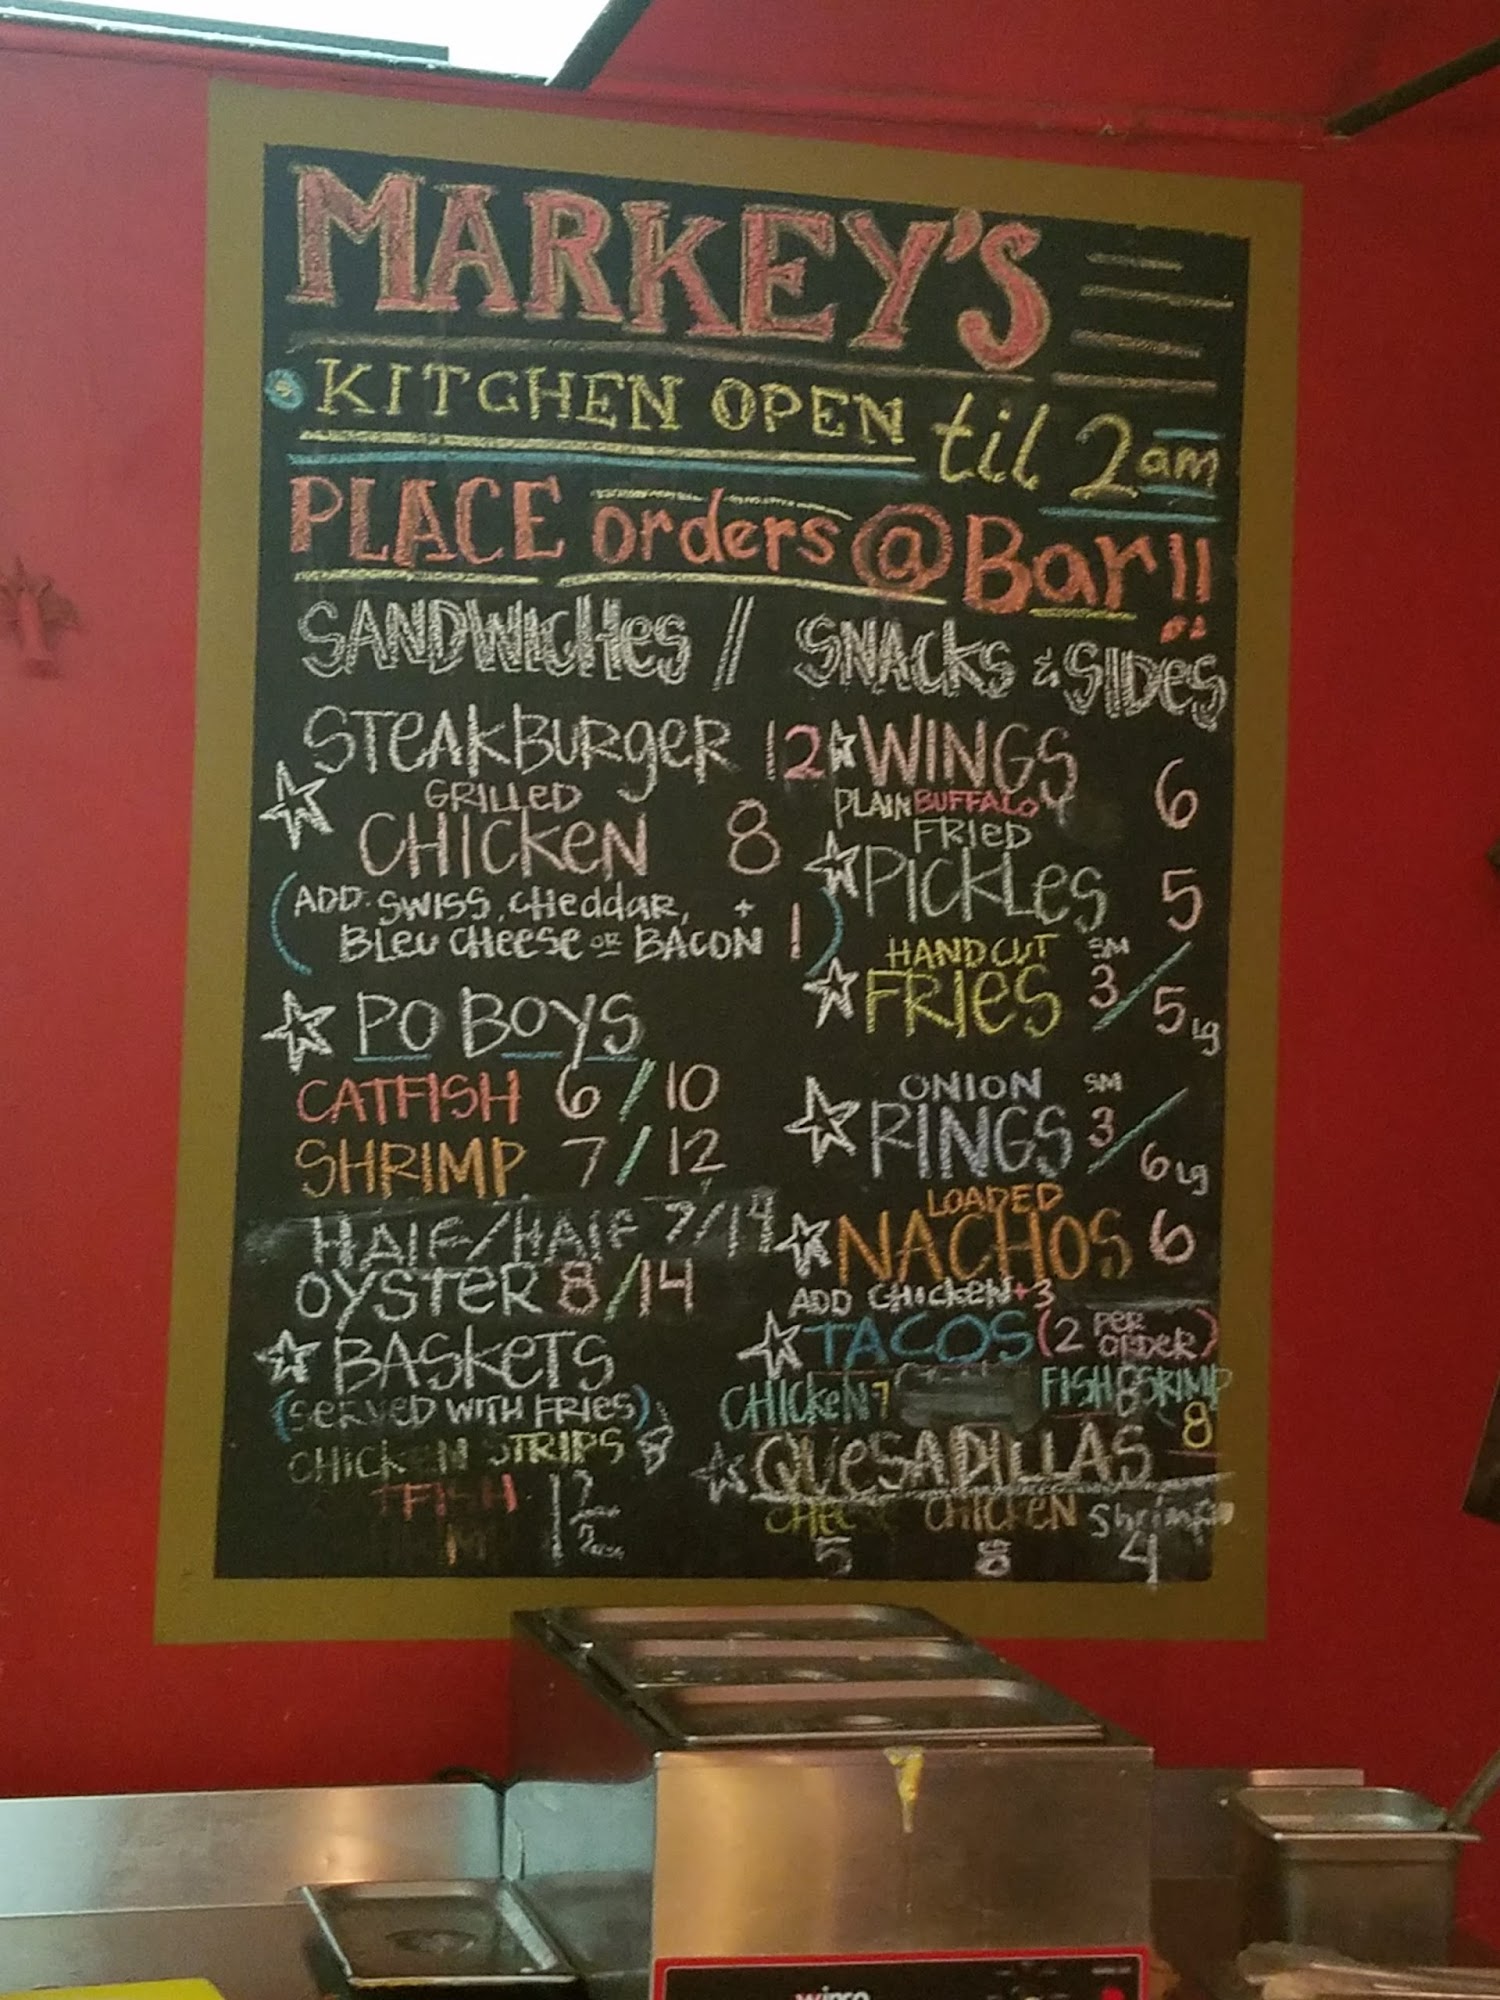 MARKEY'S
KITCHEN OPEN til 2am
PLACE orders @ Bar!!
SANDWICHes // SNACKS & SIDES
STEAKBURGER 12
GRILLED
CHICKEN 8
(ADD SWISS, CHEDDAR, +
BLEU CHEESE OR BACON 1)
PO BOYS
CATFISH 6/10
SHRIMP 7/12
HALF/HALF 7/14
OYSTER 8/14
BASKETS
(SERVED WITH FRIES)
CHICKEN STRIPS 8
12
12
WINGS 6
PLAIN BUFFALO
FRIED
PICKLES 5
HAND CUT
FRIES SM 3/5 LG
ONION
RINGS SM 3/6 LG
LOADED
NACHOS 6
ADD CHICKEN +3
TACOS (2 PER ORDER)
CHICKEN 7 FISH 8 SRIMP 8
QUESADILLAS
CHEESE CHICKEN Shrimp
5 8 4
winco